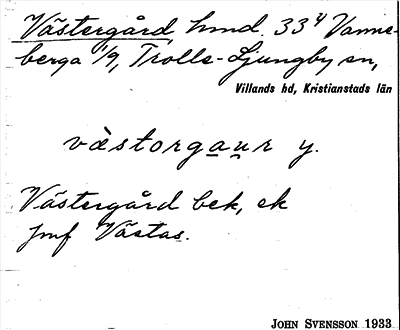 Västergård, hmd. 33⁴ Vanne-
berga 1/9, Trolle-Ljungby sn,
Villands hd, Kristianstads län
västorgaur y.
Västergård bek, ek
jmf Västas.
JOHN SVENSSON 1933